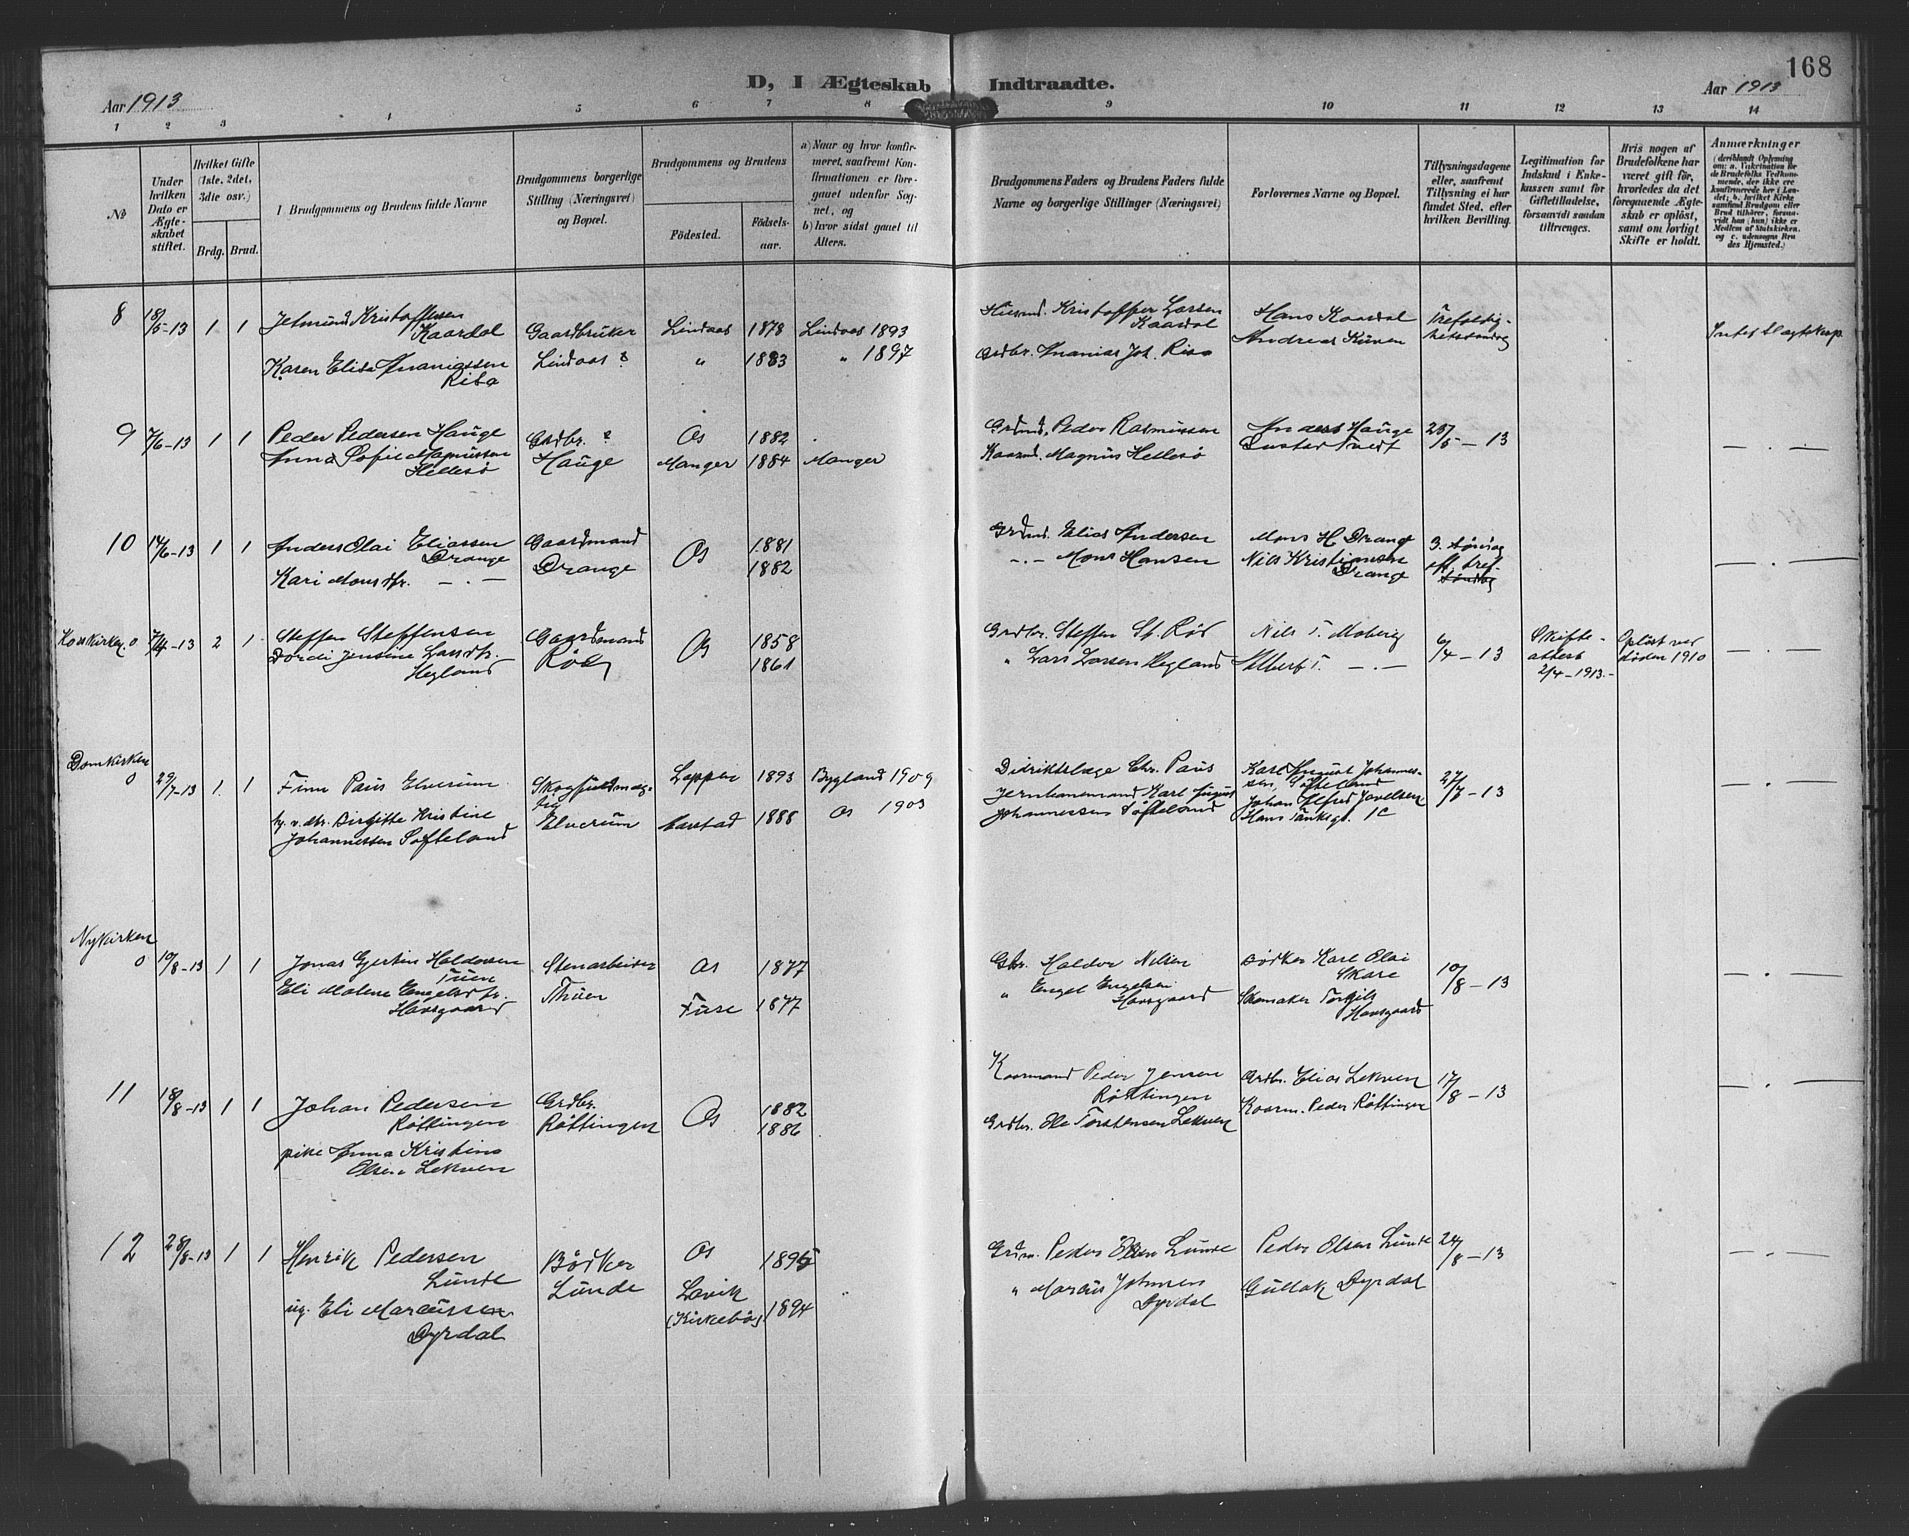 168
D, I Ægteskab Indtraadte.
Aar 1913
Aar 1913
1 2 3 4 5 6 7 8 9 10 11 12 13 14
No
Under hvilken Dato er Ægteskabet stiftet.
Hvilket Gifte (1ste, 2det, 3die osv.)
Brdg. Brud.
I Brudgommens og Brudens fulde Navne
Brudgommens borgerlige Stilling (Næringsvei) og Bopæl.
Brudgommens og Brudens
Födested.
Födsels-aar.
a) Naar og hvor konfirmeret, saafremt Konfirmationen er foregaaet udenfor Sognet, og
b) hvor sidst gaaet til Alters.
Brudgommens Faders og Brudens Faders fulde Navne og borgerlige Stillinger (Næringsvei)
Forlovernes Navne og Bopæl.
Tillysningsdagene eller, saafremt Tillysning ei har fundet Sted, efter hvilken Bevilling.
Legitimation for Indskud i Enkekassen samt for Giftetilladelse, forsaavidt saadan tiltrænges.
Hvis nogen af Brudefolkene har været gift för, hvorledes da det foregaaende Ægteskab er oplöst, samt om lovligt Skifte er holdt.
Anmærkninger
8 18/5-13 1 1 Jetmund Kristoffersen Gaardbruker Lindaas 1878 Lindaas 1893 Husmd. Kristoffer Larsen Hans Kaardal Trefoldig-
Kaardal Kaardal Andreas Kuven hetssöndag Intet slagtskap
Karen Elisa Ananiassen Lindaas " 1883 " 1897 Grdbr. Ananias Joh. Risa
Risa
9 7/6-13 1 1 Peder Pedersen Hauge Grdbr. Os 1882 Grdmd. Peder Rasmussen Anders Hauge 25/5-13
Anna Sofie Magnussen Hauge Manger 1884 Manger Kaarmd. Magnus Hellesö Gustav Tvedt - . -
Hellesö
10 14/6-13 1 1 Anders Olai Eliassen Gaardmand Os 1881 Grdmd. Elias Andersen Mons H. Drange 3. söndag
Drange Drange 1882 - . - Mons Hansen Nils Kristiansen eft. tref-
Kari Monsdtr. - . - Drange söndag - . -
Korskirken 0 7/4-13 2 1 Steffen Steffensen Gaardmand Os 1858 Grdbr. Steffen St. Röd Nils T. Moberg 6/4-13 Skifte- Oplöst ved
Dordei Jensine Larsdtr. Röd 1861 " Lars Larsen Hegland Albert T. - . - attest döden 1910 - . -
Hegland 2/4-1913.
Domkirken 0 29/7-13 1 1 Finn Paus Elverum Skogfuldmæg- 1893 Bygland 1909 Didriktslæge Chr. Paus Karl August Johannes- 27/7-13
tig sen, Söfteland - . -
Birgitte Kristine Elverum 1888 Os 1903 Jernbanemand Karl August Johan Alfred
Johannessen Söfteland Johannessen Söfteland Hans Tanksgt. 1c
Nykirken 0 10/8-13 1 1 Jonas Gjertin Haldorsen Stenarbeider Os 1877 Gbr. Haldor Nilsen Bödker Karl Olai 10/8-13
Tuen Skare - . -
Eli Malene Engelsdtr. Thuen Fuse 1877 " Engel Engelsen Skomaker Torkils
Havsgaard Havsgaard Havsgaard
11 18/8-13 1 1 Johan Pedersen Grdbr. Os 1882 Kaarmand Peder Jensen Grdbr. Elias Lekven 17/8-13
Röttingen Röttingen 1886 Röttingen Kaarm. Peder Röttingen - . -
pike Anna Kristine Grdbr. Ole Torstensen Lekven
Olsen Lekven
12 28/8-13 1 1 Henrik Pedersen Bödker Os 1895 Grdm. Peder Olsen Lunde Peder Olsen Lunde 24/8-13
Lunde Lunde - . -
ug. Eli Marcussen Lavik 1894 " Marcus Johnsen Gullak Dyrdal
Dyrdal (Kirkebö) Dyrdal